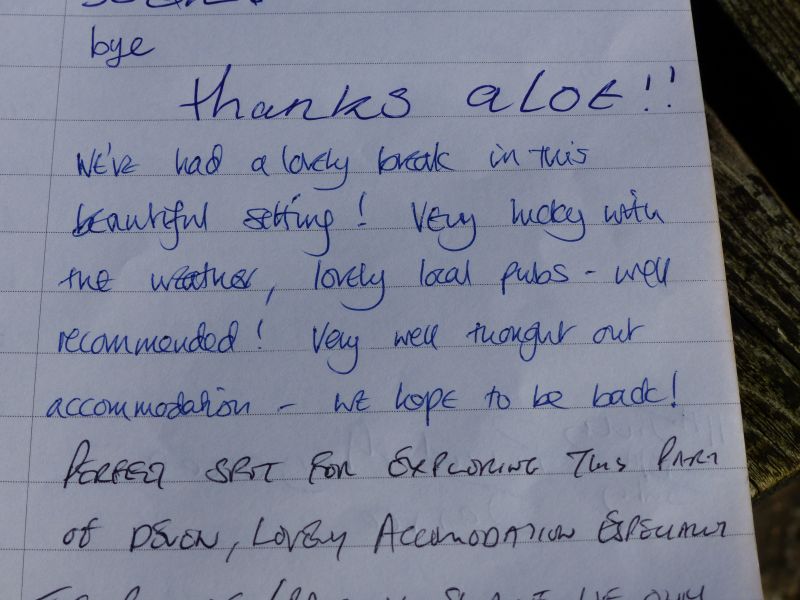 bye
thanks alot!!
WE'VE had a lovely break in this
beautiful setting! Very lucky with
the weather, lovely local pubs - well
recommended! Very well thought out
accommodation - WE hope to be back!
PERFECT SPOT FOR EXPLORING THIS PART
of DEVON, LOVELY ACCOMODATION ESPECIALLY